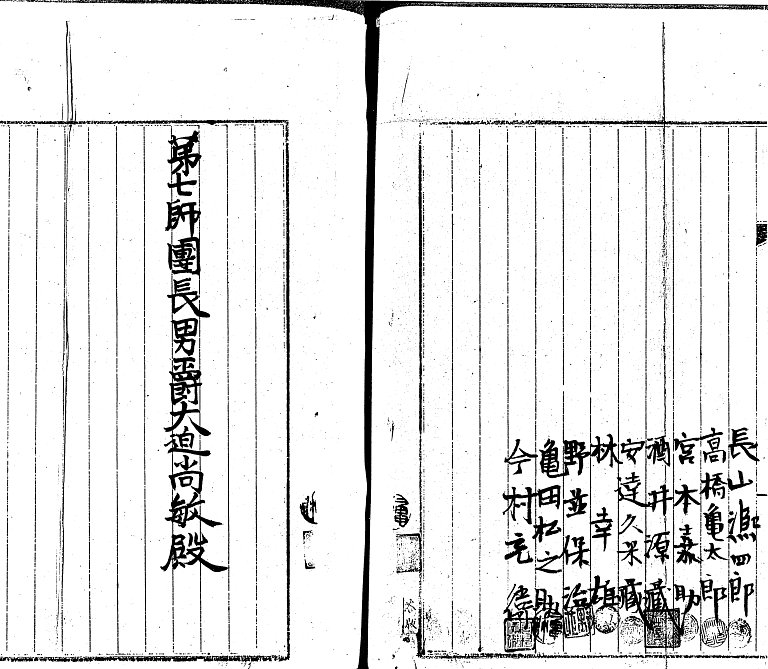 長山漁四郎
高橋亀太郎
宮本嘉助
酒井源藏
安達久米藏
林幸雄
野並保治
亀田松之助
今村充衛
第七師團長男爵大迫尚敏殿